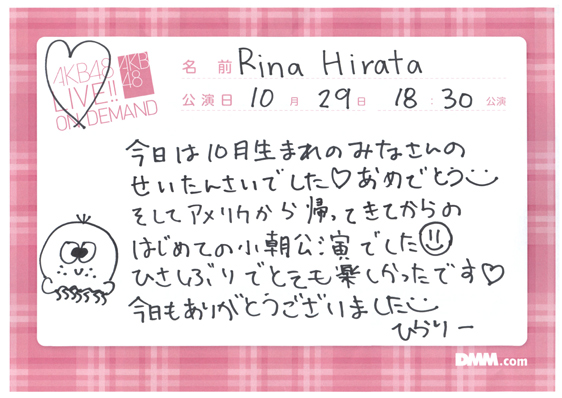 AKB48
LIVE!!
ON DEMAND
AKB
48
名前 Rina Hirata
公演日 10月29日 18:30公演
今日は10月生まれのみなさんの
せいたんさいでした♡おめでとう
そしてアメリカから帰ってきてからの
はじめての小朝公演でした
ひさしぶりでとても楽しかったです♡
今日もありがとうございました
ひらりー
DMM.com